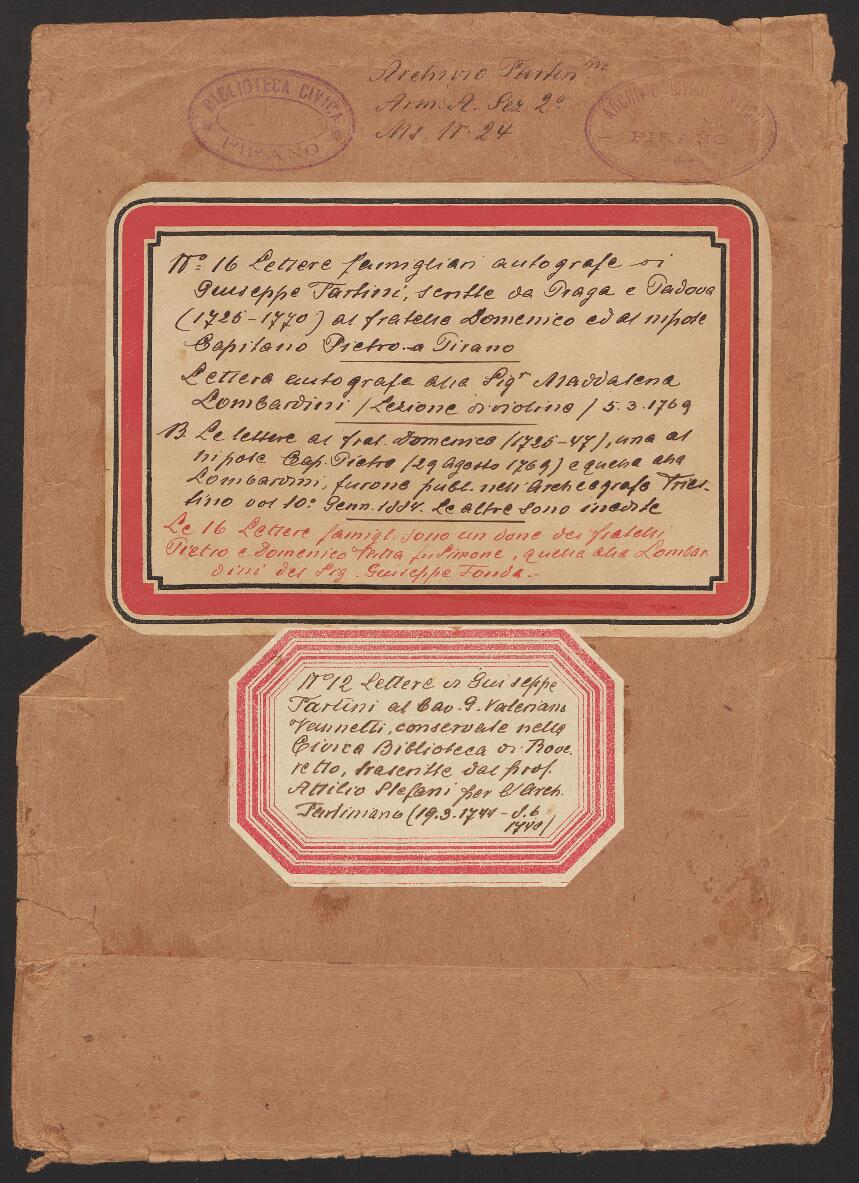 BIBLIOTECA CIVICA
PIRANO
Archivio Tartin.no
Arm. A. Sez. 2a
Ms. N. 24
PIRANO
No. 16 Lettere famigliari autografe di
Giuseppe Tartini, scritte da Praga e Padova
(1725-1770) al fratello Domenico ed al nipote
Capitano Pietro a Pirano
Lettera autografa alla Sigr Maddalena
Lombardini / Lezione di violino / 5.3.1769
B. Le lettere al frat. Domenico (1725-47), una al
nipote Cap. Pietro (29 Agosto 1769) e quella alla
Lombardini, furono publ. nell'Archeografo Tries-
tino vol 10: Genn. 1884. Le altre sono inedite
Le 16 Lettere famigl. sono un dono dei fratelli
Pietro e Domenico fu Simone, quella alla Lombar
dini del Sig. Giuseppe Fonda.-
No 12 Lettere di Giuseppe
Tartini al Cav. G. Valeriano
Vannetti, conservate nella
Civica Biblioteca di Rove
retto, trascritte dal prof.
Attilio Stefani per l'Arch.
Tartiniano (19.3.1744 -